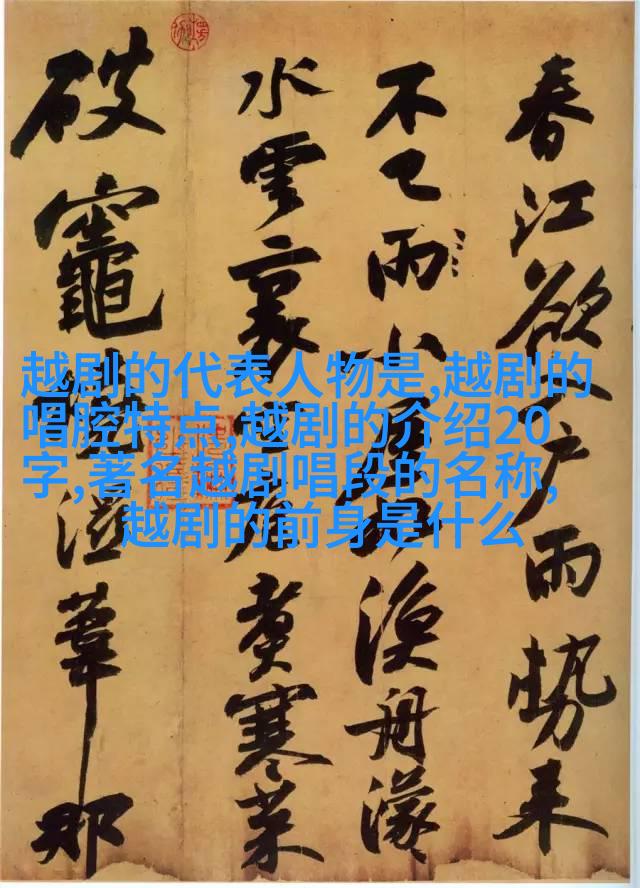 春江欲入戶雨勢来
不已雨小屋漁舟濛
水雲裏庖煮寒菜
破竈濕葦那
越剧的代表人物是,越剧的
唱腔特点,越剧的介绍20
字,著名越剧唱段的名称,
越剧的前身是什么